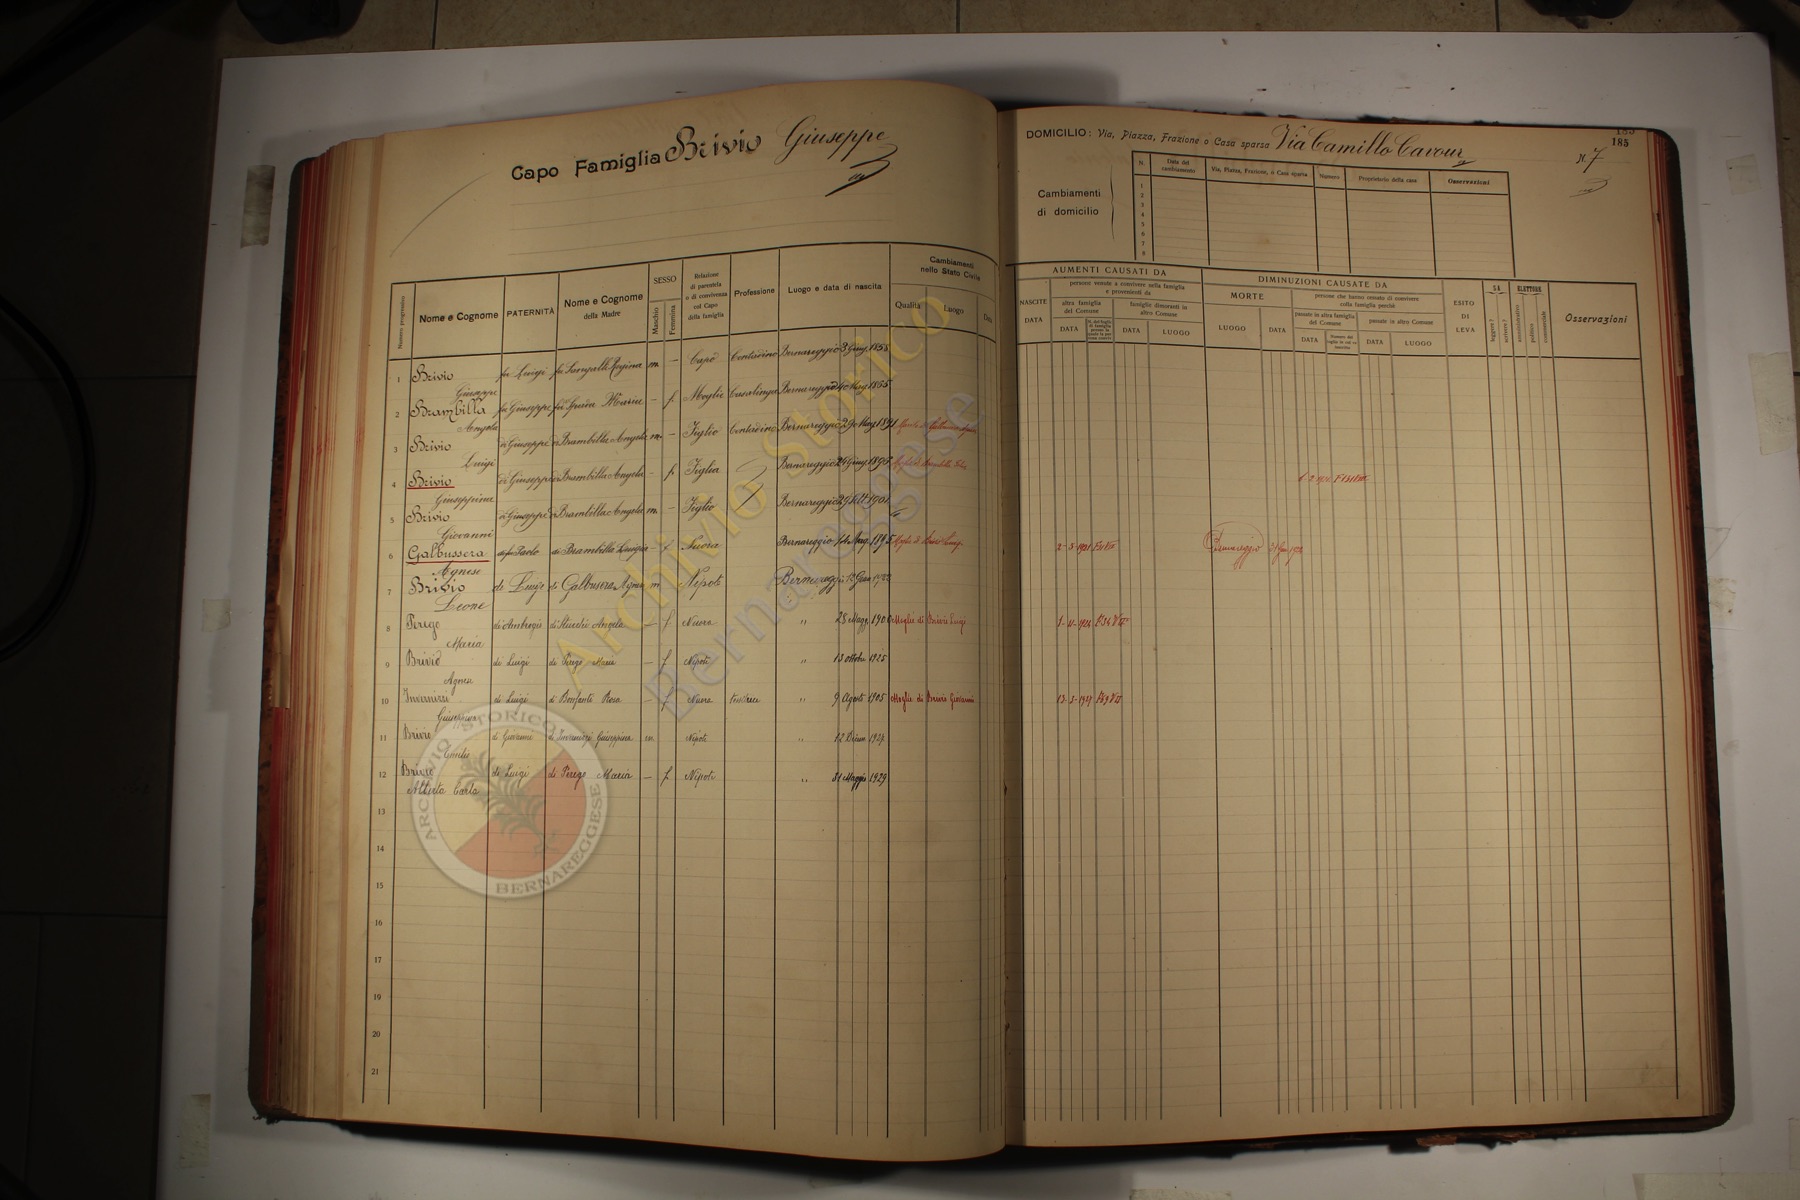 Capo Famiglia Brivio Giuseppe
DOMICILIO: Via, Piazza, Frazione o Casa sparsa Via Camillo Cavour N. 7
185
Cambiamenti di domicilio
N. Data del cambiamento Via, Piazza, Frazione, o Casa sparsa Numero Proprietario della casa Osservazioni
1
2
3
4
5
6
7
8
Numero progressivo Nome e Cognome PATERNITÀ Nome e Cognome della Madre SESSO Maschio Femmina Relazione di parentela o di convivenza col Capo della famiglia Professione Luogo e data di nascita Cambiamenti nello Stato Civile Qualità Luogo Data
AUMENTI CAUSATI DA
NASCITE DATA
persone venute a convivere nella famiglia e provenienti da
altra famiglia del Comune DATA
famiglie dimoranti in altro Comune DATA LUOGO
DIMINUZIONI CAUSATE DA
MORTE LUOGO DATA
persone che hanno cessato di convivere colla famiglia perchè
passate in altra famiglia del Comune DATA
passate in altro Comune DATA LUOGO
ESITO DI LEVA
SA leggere? scrivere?
ELETTORE amministrativo politico commerciale
Osservazioni
1 Brivio Giuseppe fu Luigi fu Sangalli Regina m. — Capo Contadino Bernareggio 3 Giug. 1855
2 Brambilla Angela fu Giuseppe fu Spada Maria — f. Moglie Casalinga Bernareggio Mag 1865
3 Brivio Luigi di Giuseppe di Brambilla Angela m. — Figlio Contadino Bernareggio 29 Mag 1891
4 Brivio Giuseppina di Giuseppe di Brambilla Angela — f. Figlia Bernareggio 24 Giug. 1895
5 Brivio Giovanni di Giuseppe di Brambilla Angela m. — Figlio Bernareggio 29 Sett. 1901
6 Galbussera Agnese di fu Paolo di Brambilla Luigia — f Nuora Bernareggio Mag. 1895 Moglie di Brivio Luigi 2-5-1921 Bernareggio
7 Brivio Leone di Luigi di Galbusera Agnese m Nipoti Bernareggio 13 Genn
8 Perego Maria di Ambrogio di Stucchi Angela — f Nuora " 28 Magg. 1900 Moglie di Brivio Luigi 1-11-1924
9 Brivio Agnese di Luigi di Perego Maria — f Nipoti " 13 ottobre 1925
10 Invernizzi Giuseppina di Luigi di Bonfanti Rosa — f Nuora Tessitrice " 9 Agosto 1905 Moglie di Brivio Giovanni
11 Brivio Emilio di Giovanni di Invernizzi Giuseppina m Nipoti " 12 Dicem. 1927
12 Brivio Alberta Carla di Luigi di Perego Maria — f. Nipoti " 31 Maggio 1929
13
14
15
16
17
18
19
20
21
Archivio Storico Bernareggese
ARCHIVIO STORICO BERNAREGGESE